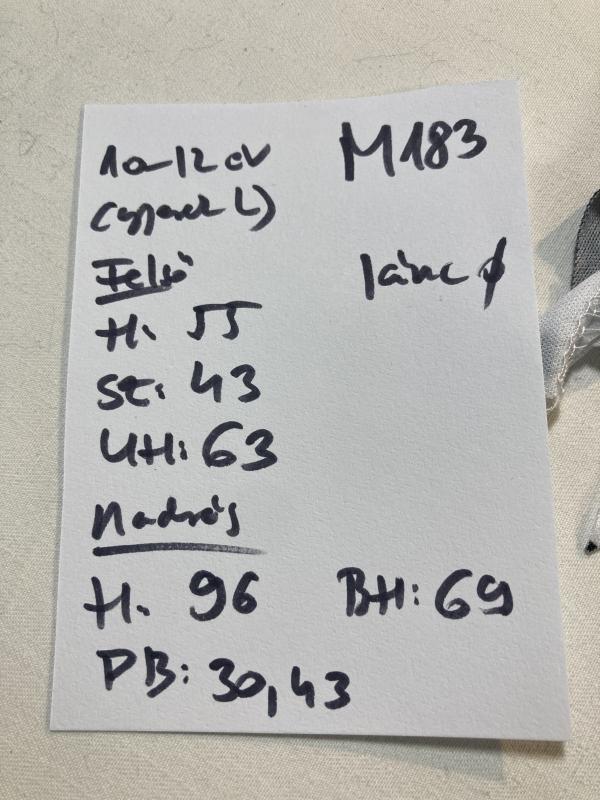 10-12 év M183
(gyerek L)
Felső
lánc ϕ
H. 55
SZ: 43
UH: 63
Nadrág
H. 96 BH: 69
DB: 30,43